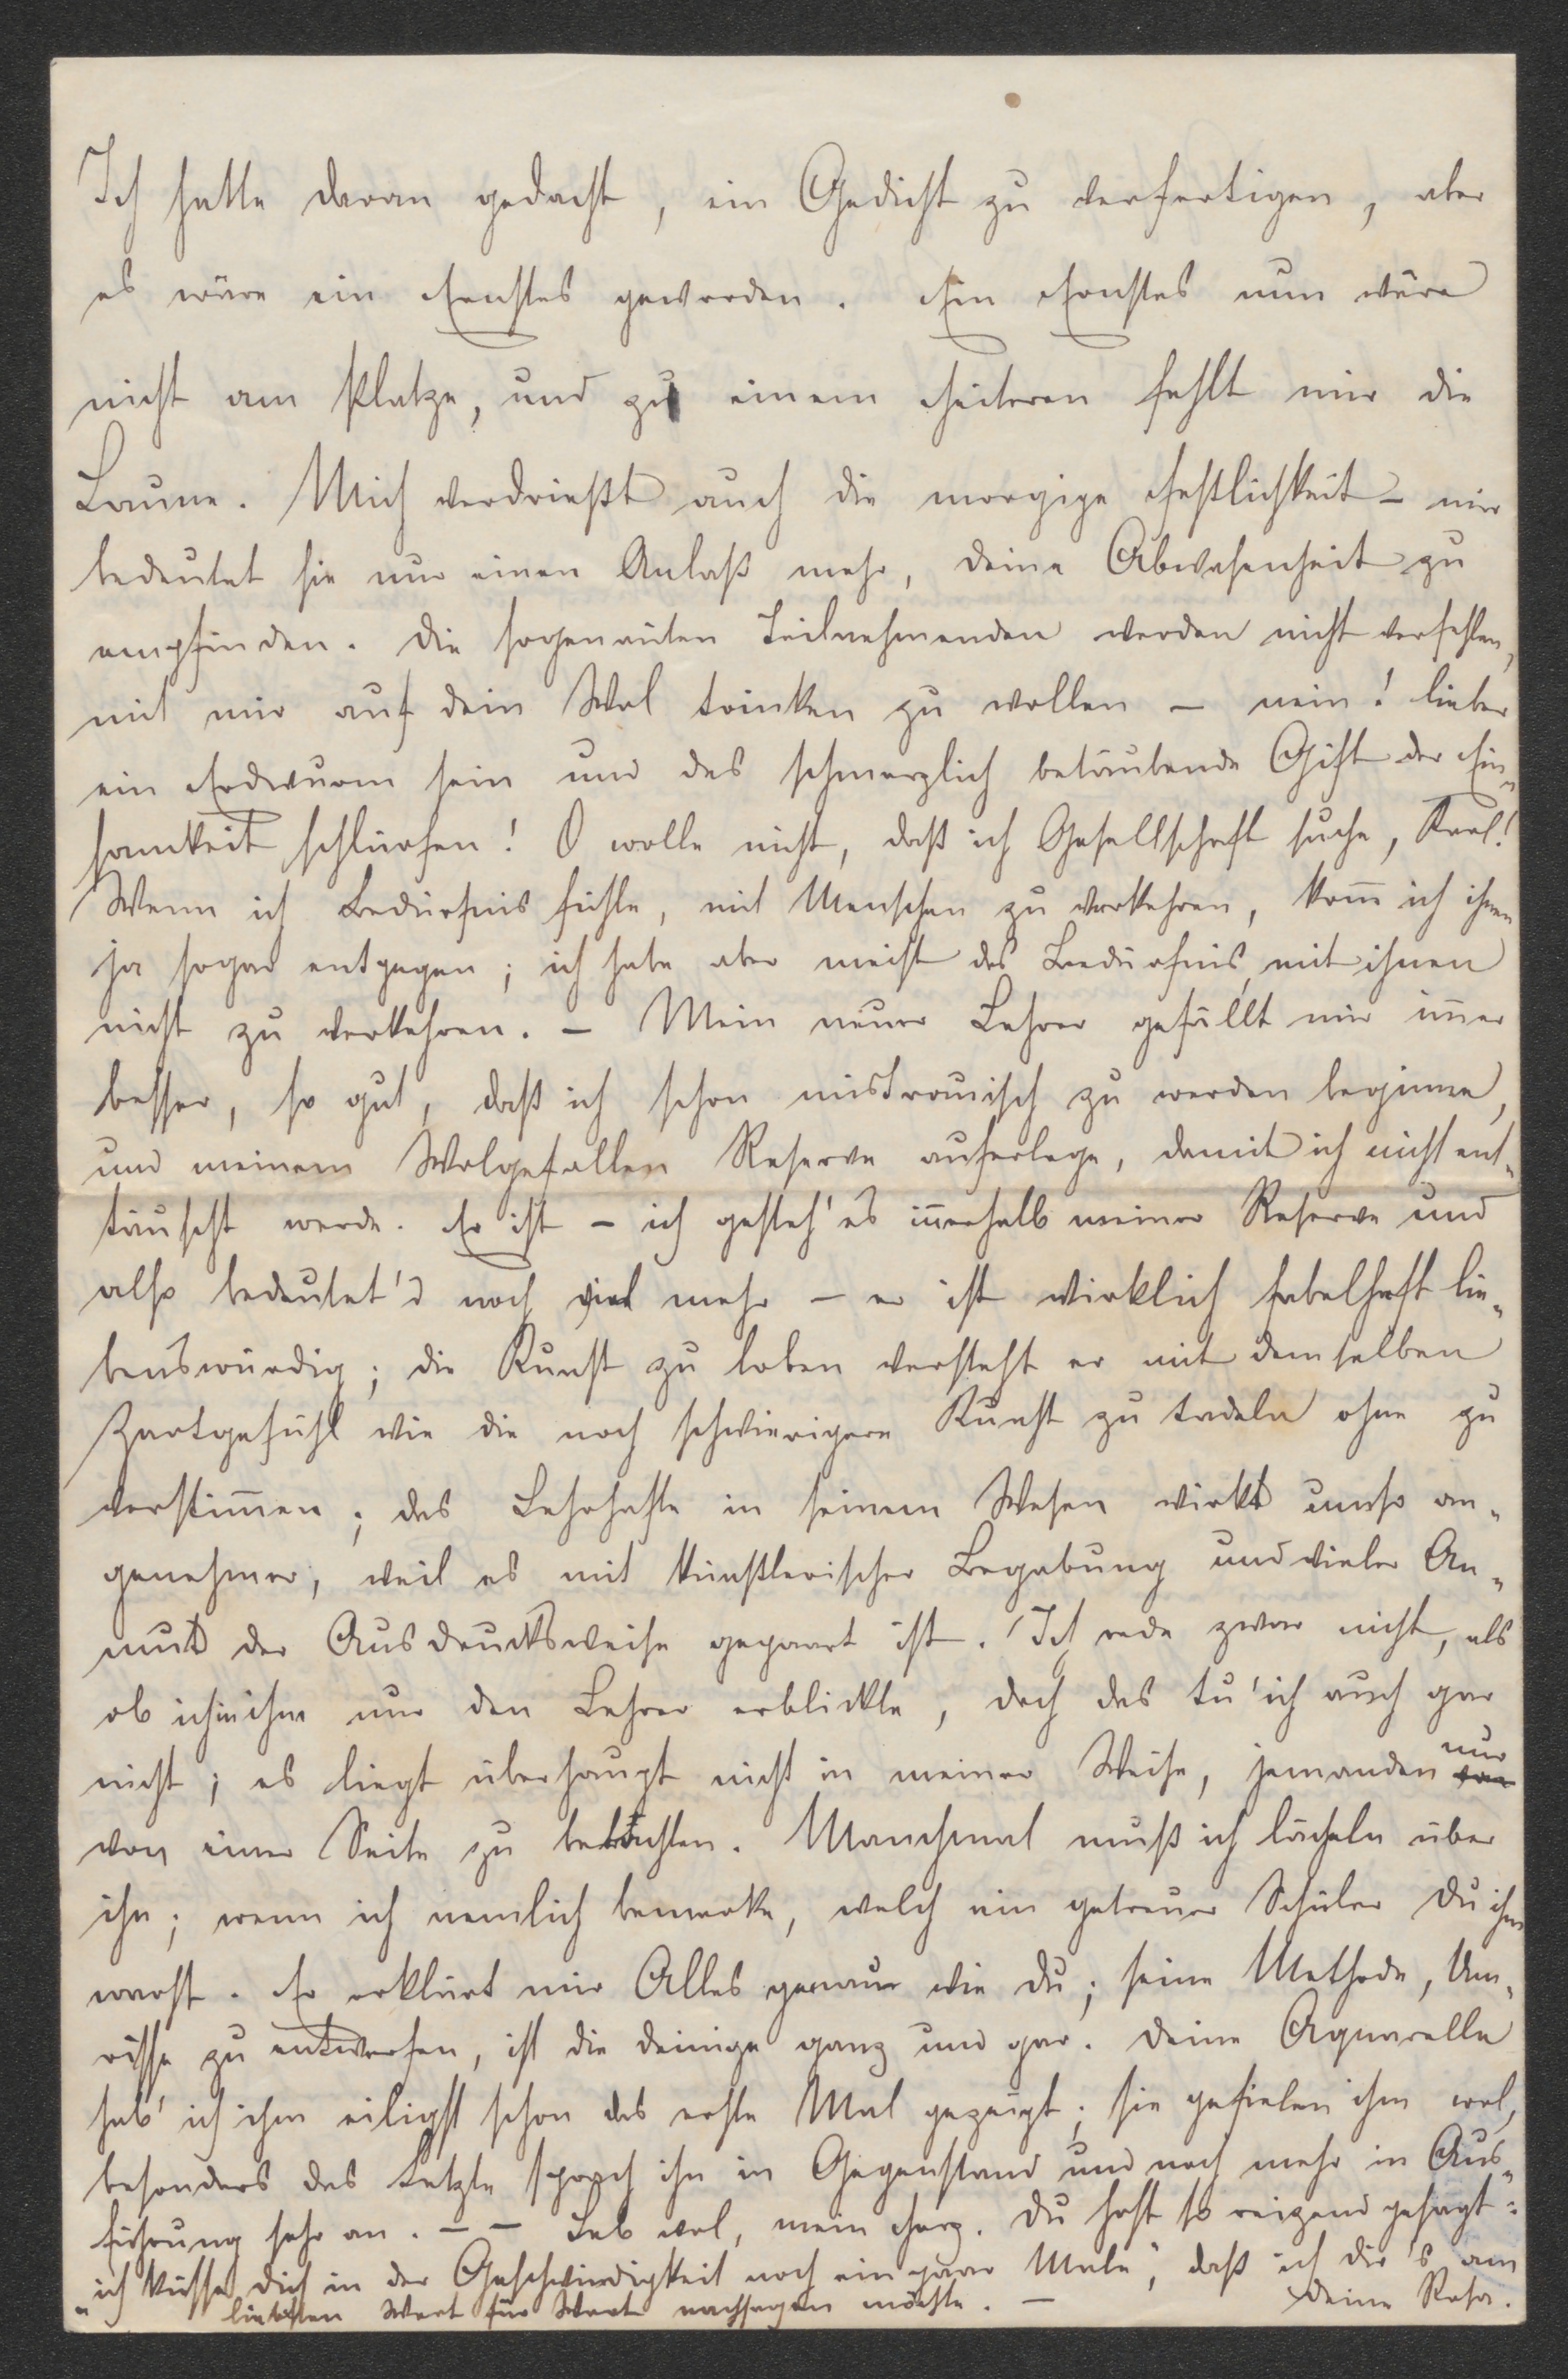 Ich hatte daran gedacht, ein Gedicht zu verfertigen, aber
es wäre ein Ernstes geworden. Ein Ernstes nun wäre
nicht am Platze, und zu einem Heiteren fehlt mir die
Laune. Mich verdrießt auch die morgige Festlichkeit – mir
bedeutet sie nur einen Anlaß mehr, deine Abwesenheit zu
empfinden. Die sogenannten Teilnehmenden werden nicht verfehlen,
mit mir auf dein Wol trinken zu wollen – nein! lieber
ein Erdwurm sein und das schmerzlich betäubende Gift der Ein„
samkeit schlürfen! O wolle nicht, daß ich Gesellschaft suche, Karl!
Wenn ich Bedürfnis fühle, mit Menschen zu verkehren, kom̅ ich ihnen
ja sogar entgegen; ich habe aber meist das Bedürfnis, mit ihnen
nicht zu verkehren. – Mein neuer Lehrer gefällt mir im̅er
besser, so gut, daß ich schon mistrauisch zu werden beginne,
und meinem Wolgefallen Reserve auferlege, damit ich nicht ent„
täuscht werde. Er ist – ich gesteh' es in̅erhalb meiner Reserve und
also bedeutet's noch viel mehr – er ist wirklich fabelhaft lie„
benswürdig; die Kunst zu loben versteht er mit demselben
Zartgefühl wie die noch schwierigere Kunst zu tadeln ohne zu
verstim̅en; das Lehrhafte in seinem Wesen wirkt umso an„
genehmer, weil es mit künstlerischer Begabung und vieler An„
mut der Ausdrucksweise gepaart ist. Ich rede zwar nicht, als
ob ich in ihm nur den Lehrer erblickte, doch das tu' ich auch gar
nicht; es liegt überhaupt nicht in meiner Weise, jemanden nur
von einer Seite zu betrachten. Manchmal muß ich lächeln über
ihn; wenn ich nemlich bemerke, welch ein getreuer Schüler du ihm
warst. Er erklärt mir Alles genau wie du; seine Methode, Um„
risse zu entwerfen, ist die deinige ganz und gar. Deine Aquarelle
hab' ich ihm eiligst schon das erste Mal gezeigt; sie gefielen ihm wol,
besonders das Letzte sprach ihn in Gegenstand und noch mehr in Aus„
führung sehr an. – – Leb wol, mein Herz. Du hast so reizend gesagt:
„ich küsse dich in der Geschwindigkeit noch ein paar Male“, daß ich dir's am
liebsten Wort für Wort nachsagen möchte. – Deine Rosa.